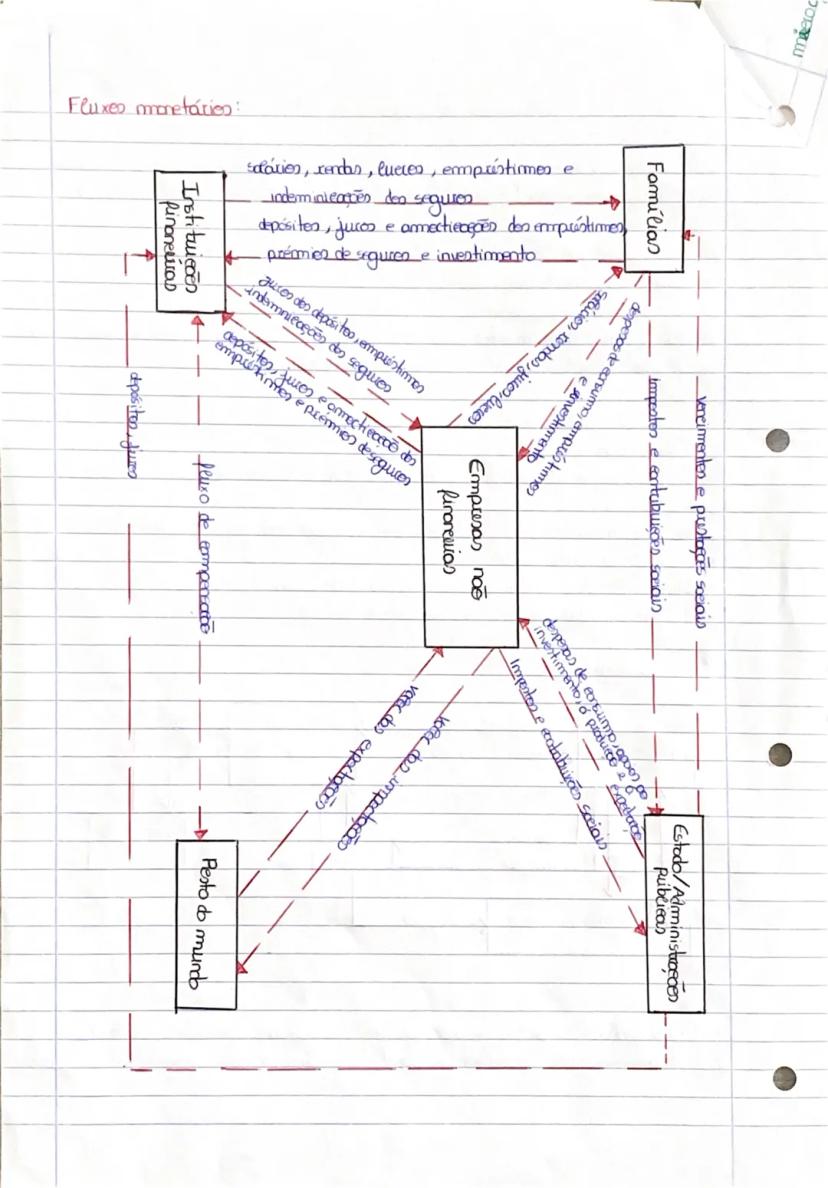 Fluxos monetários:
Famílias
Instituições
financeiras
salários, rendas, lucros, empréstimos e
indeminizações dos seguros
depósitos, juros e amortizações dos empréstimos,
prémios de seguros e investimento
juros dos depósitos, empréstimos
indemnizações dos seguros
depósitos, juros e amortização dos
empréstimos e prémios de seguros
salários, rendas, juros, lucros
despesas de consumo, empréstimos
e investimento
impostos e contribuições sociais
vencimentos e prestações sociais
depósitos, juros
fluxo de compensação
Empresas não
financeiras
despesas de consumo, apoios ao
investimento, à produção e à exportação
Impostos e contribuições sociais
valor das exportações
valor das importações
Estado/Administrações
públicas
Resto do mundo